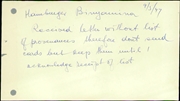 9/3/97
Hamburger Binyamina
Received letter without list
of pronouncers therefore don't send
cards but keep them until I
acknowledge receipt of list